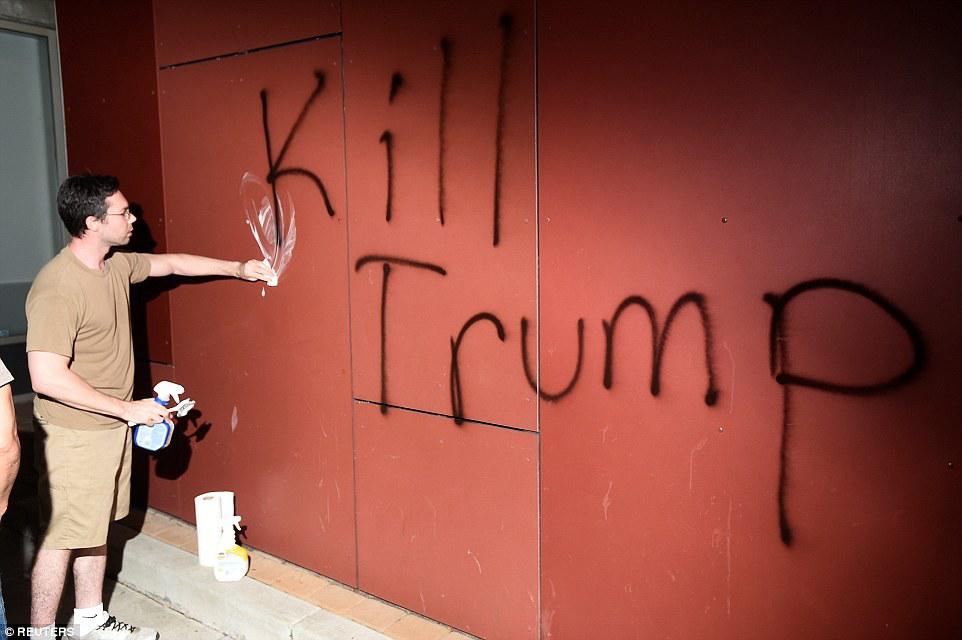 Kill
Trump
© REUTERS